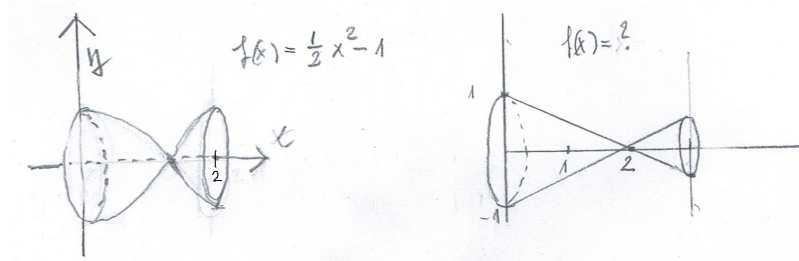 y
f(x) = 1/2 x² - 1
x
2
f(x) = ?
1
1
2
-1